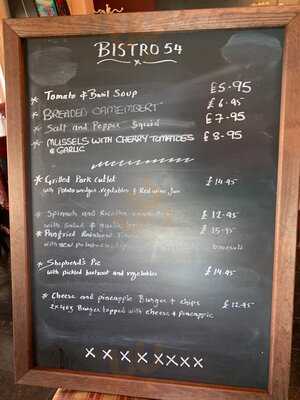 BISTRO 54
Tomato & Basil Soup £5.95
BREADED CAMEMBERT £6.95
Salt and Pepper Squid £7.95
MUSSELS WITH CHERRY TOMATOES £8.95
& GARLIC
Grilled Pork Cutlet £14.95
with Potato wedges, vegetables & Red wine Jus
Spinach and Ricotta £12.95
with salad & garlic
Panfried Rainbow £15.95
with new potatoes
Shepherd's Pie £14.95
with pickled beetroot and vegetables
Cheese and pineapple Burger + chips £12.95
2x4oz Burger topped with cheese + Pineapple
X X X X X X X X